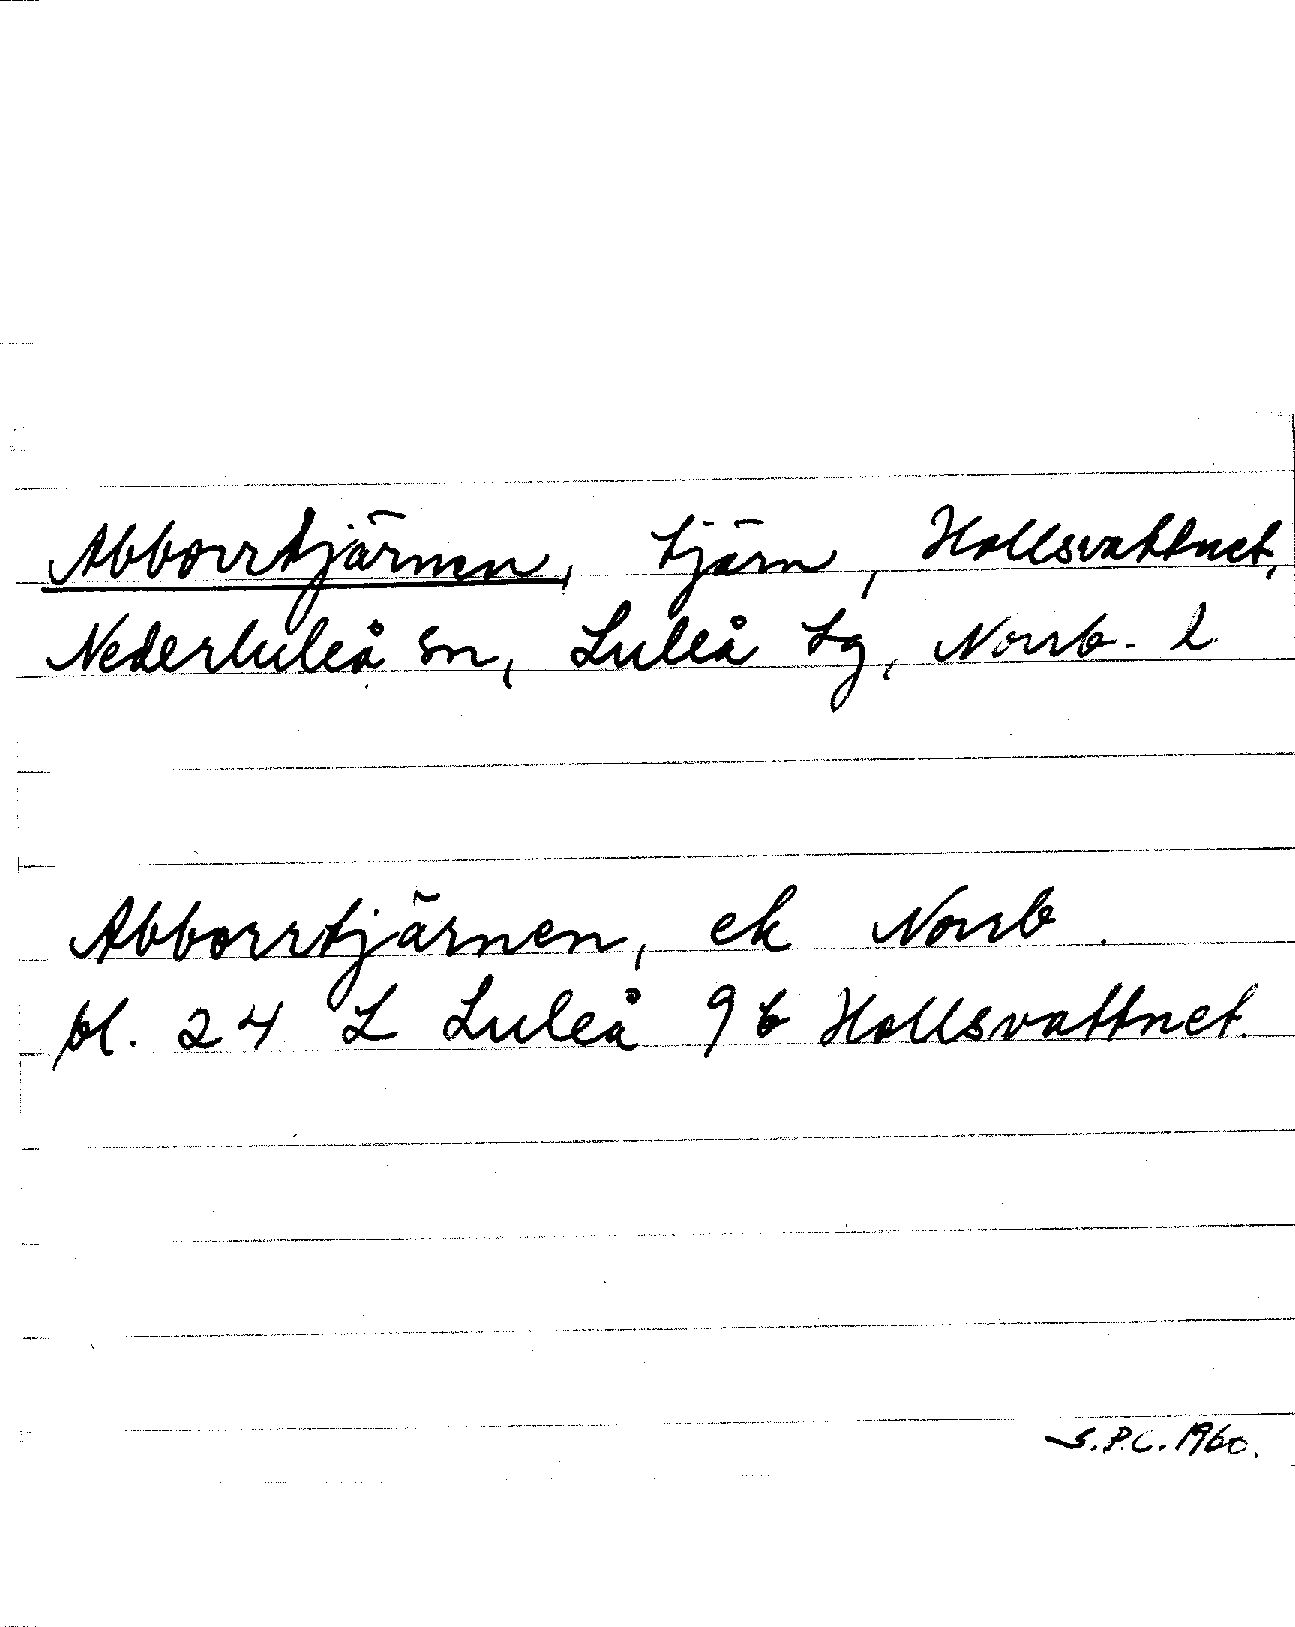 Abborrtjärnen, tjärn, Hollsvattnet,
Nederluleå sn, Luleå tg, Norrb. l
Abborrtjärnen, ek Norrb.
bl. 24 L Luleå 9 b Hollsvattnet.
S.P.C. 1960.